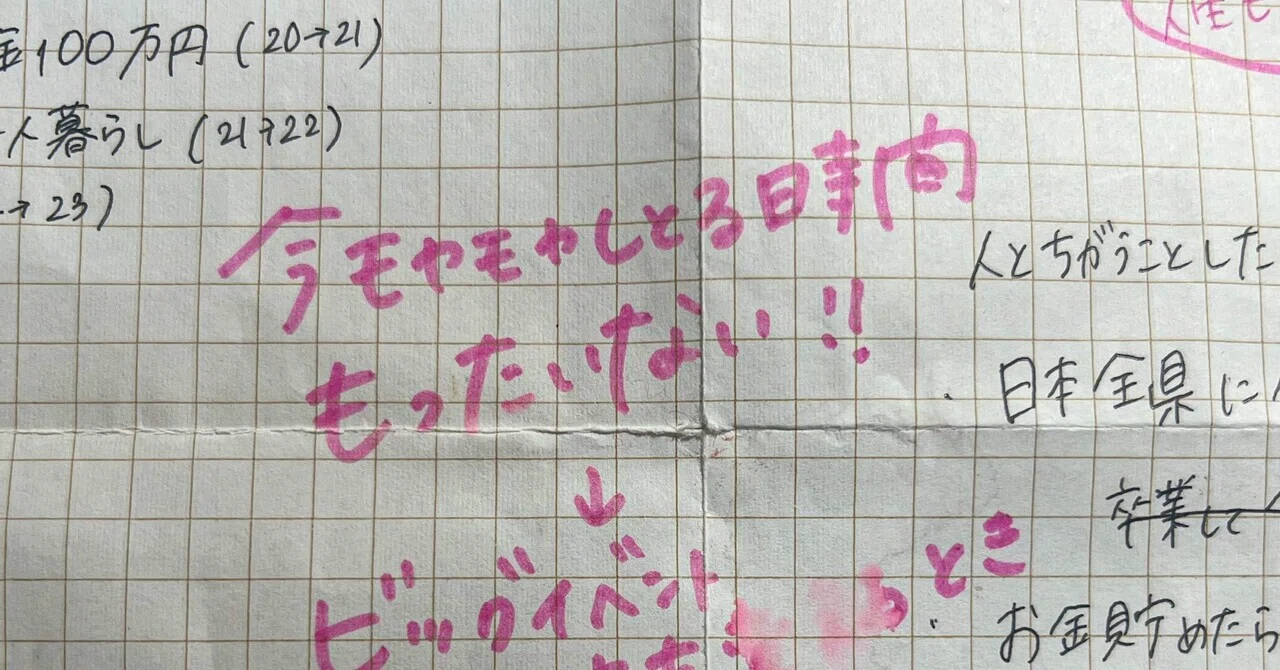 金100万円(20→21)
一人暮らし(21→22)
→23)
今モヤモヤしとる時間
もったいない!!
↓
ビッグイベント
とき
人とちがうことした
・日本全県に
卒業して
・お金貯めたら